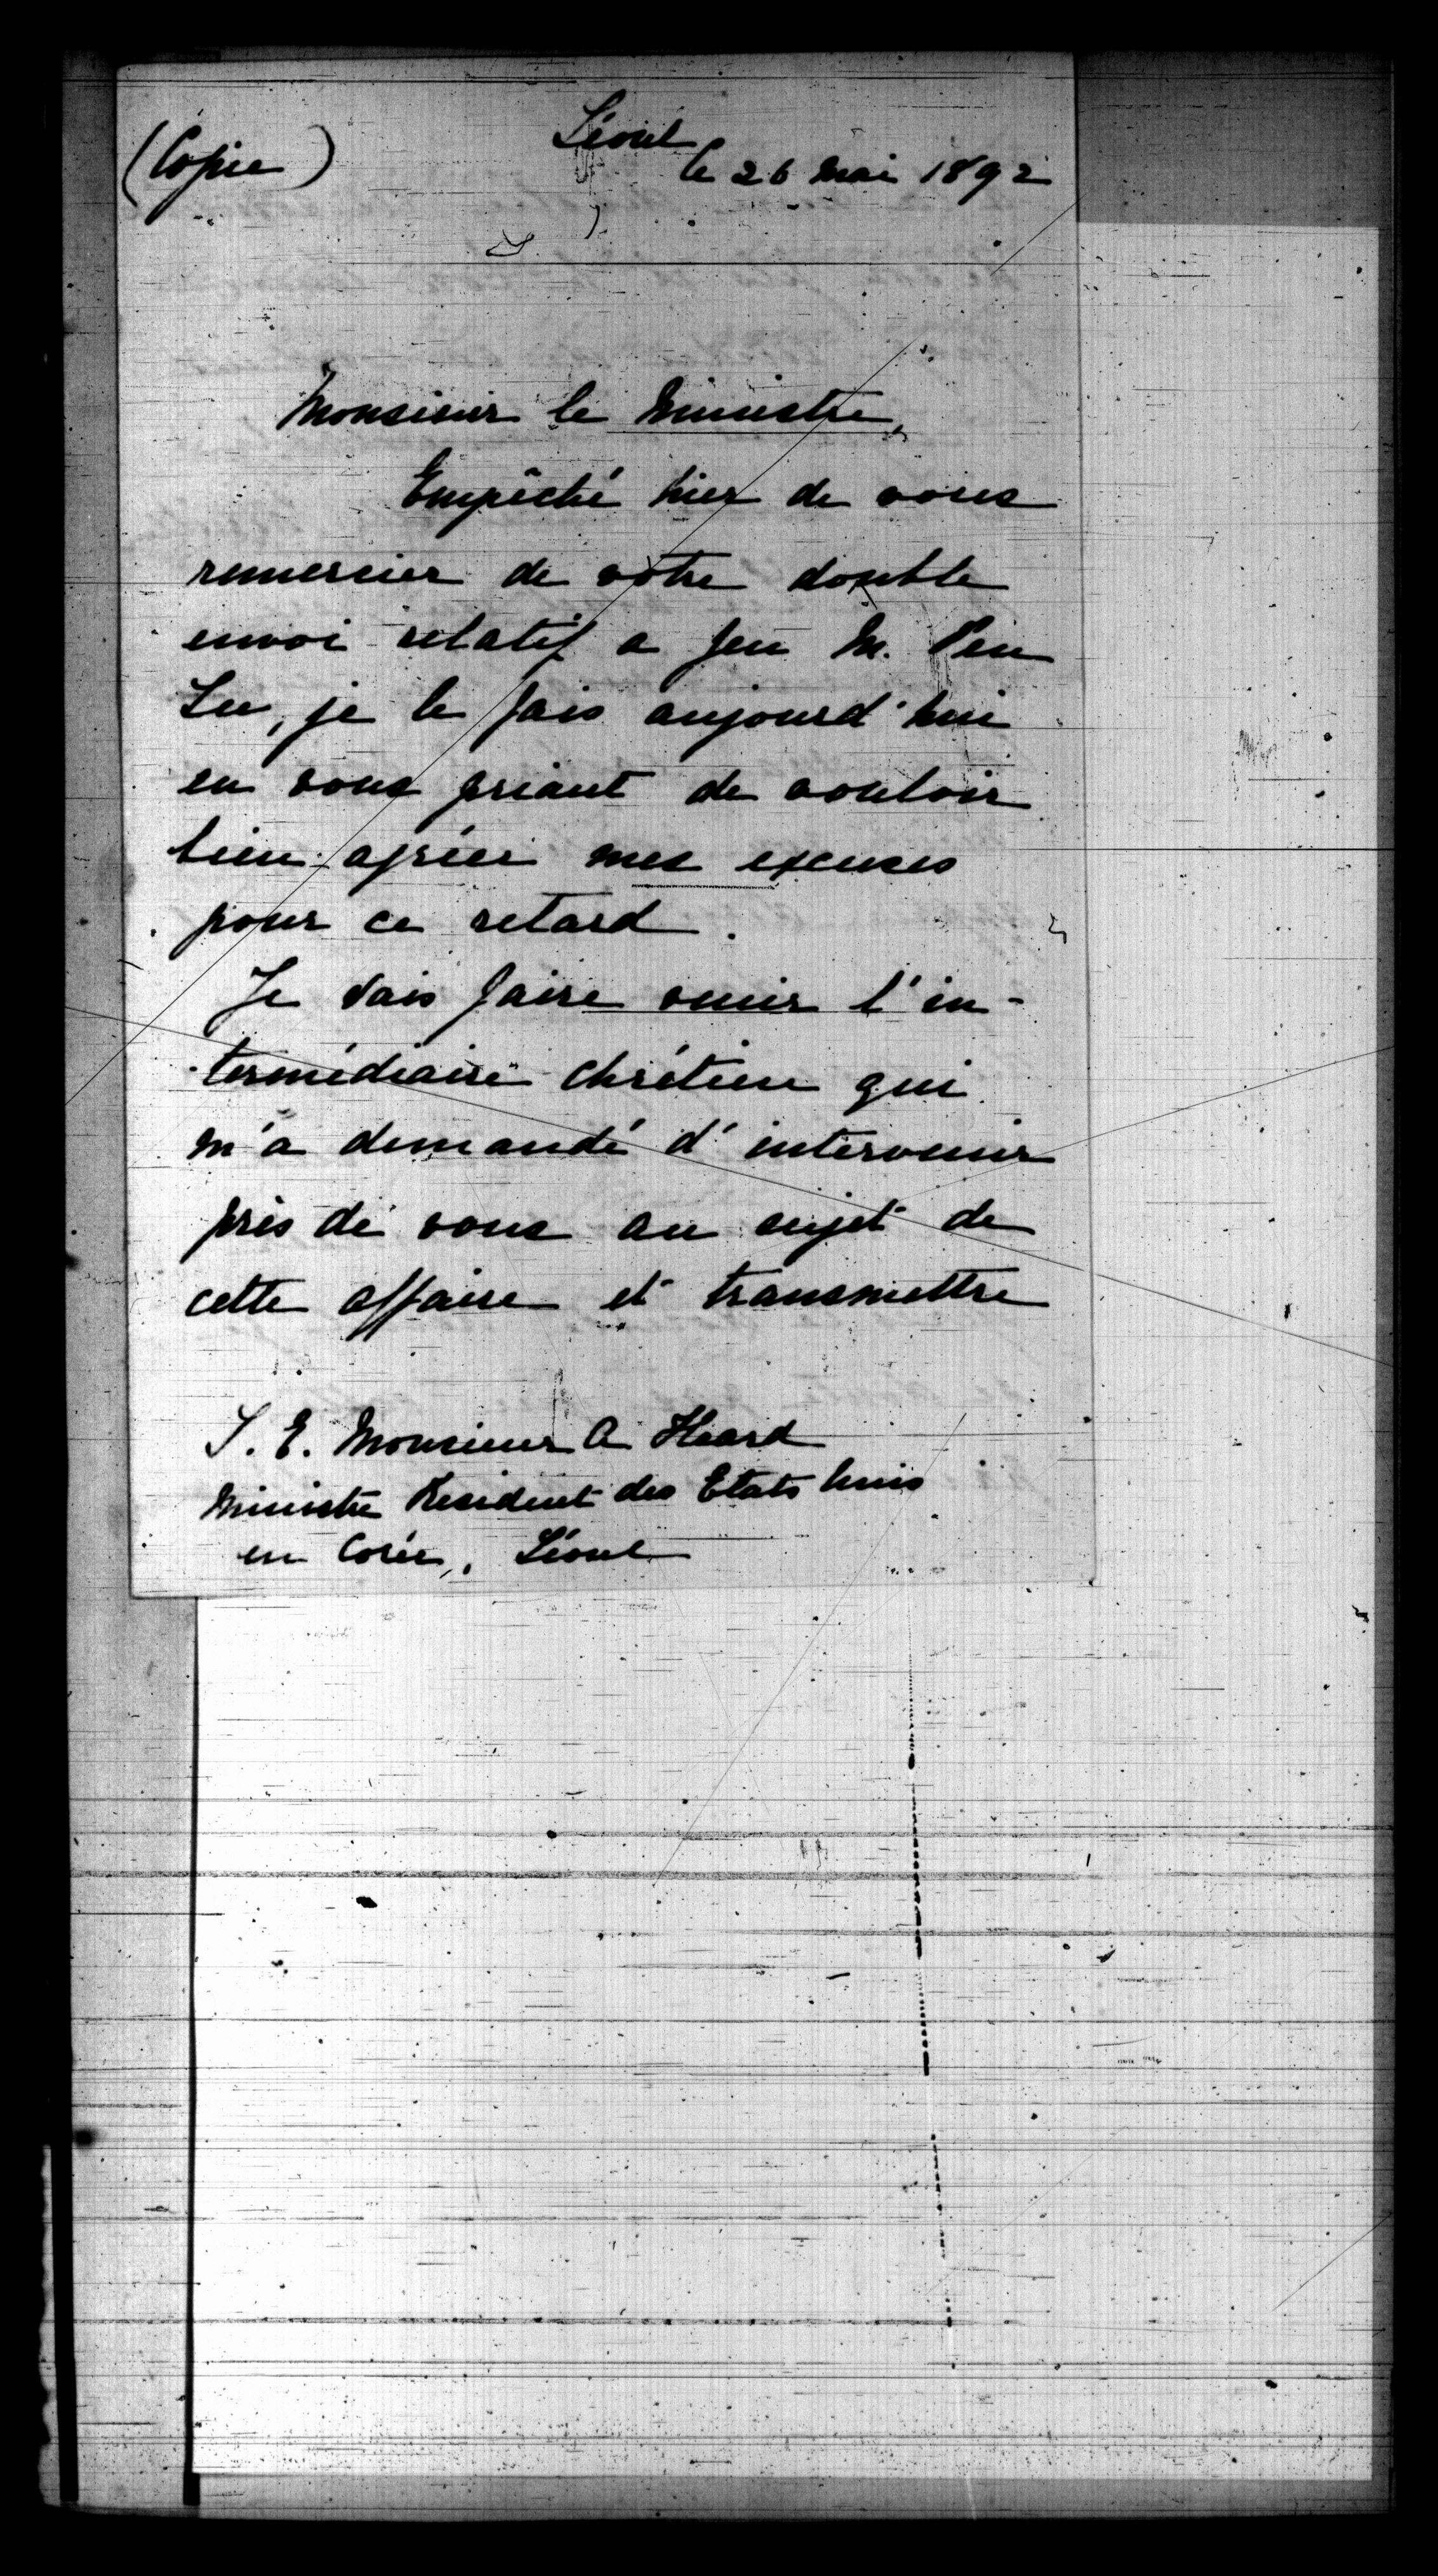 (Copie)
Séoul
le 26 Mai 1892
Monsieur le Ministre,
Empêché hier de vous
remercier de votre double
envoi relatif a feu M. Pen
Su, je le fais aujourd'hui
en vous priant de vouloir
bien agréer mes excuses
pour ce retard.
Je vais faire venir l'in-
termédiaire chrétien qui
m'a demandé d'intervenir
près de vous au sujet de
cette affaire et transmettre
S. E. Monsieur A Heard
Ministre Resident des Etats Unis
en Corée, Séoul